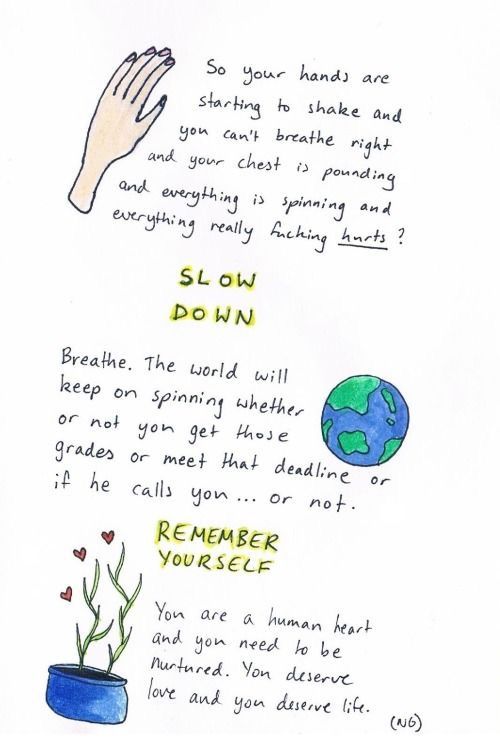 So your hands are
starting to shake and
you can't breathe right
and your chest is pounding
and everything is spinning and
everything really fucking hurts?
SLOW
DOWN
Breathe. The world will
keep on spinning whether
or not you get those
grades or meet that deadline or
if he calls you... or not.
REMEMBER
YOURSELF
You are a human heart
and you need to be
nurtured. You deserve
love and you deserve life.
(NG)